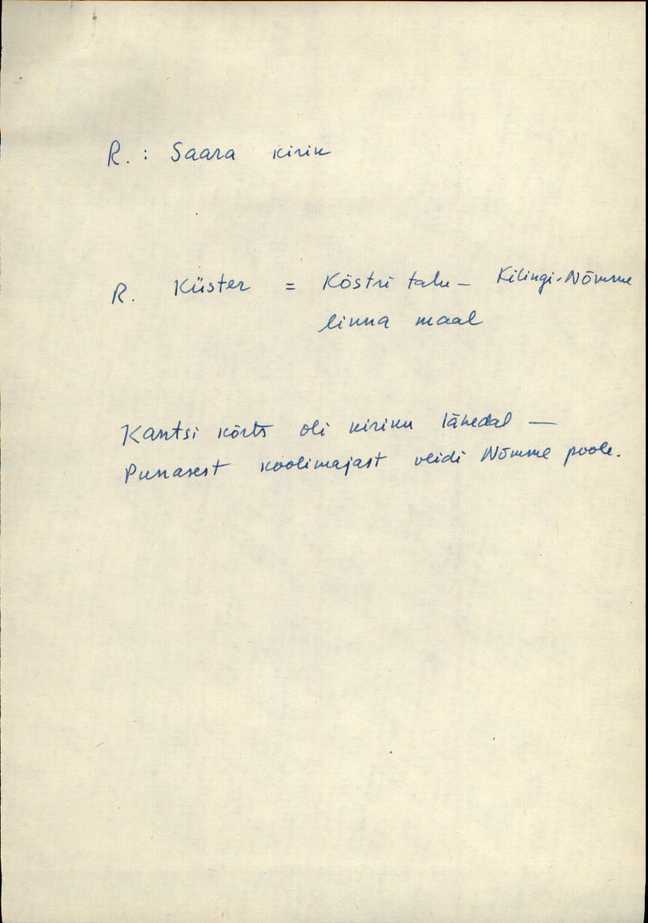 R. : Saara kirik
R. Küster = Köstri talu – Kilingi-Nõmme
linna maal
Kantsi kõrts oli kiriku lähedal —
Punasest koolimajast veidi Nõmme poole.